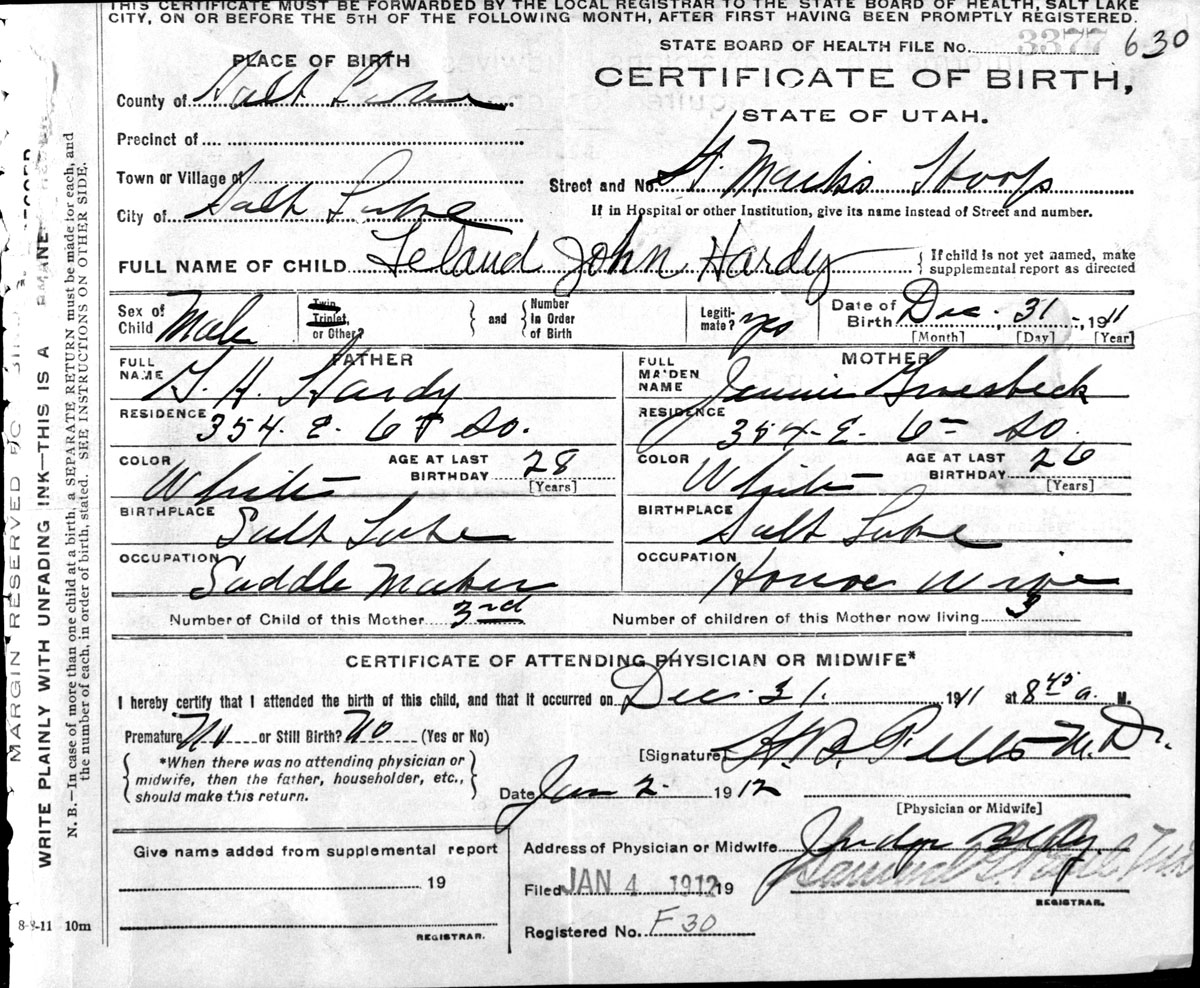 THIS CERTIFICATE MUST BE FORWARDED BY THE LOCAL REGISTRAR TO THE STATE BOARD OF HEALTH, SALT LAKE
CITY, ON OR BEFORE THE 5TH OF THE FOLLOWING MONTH, AFTER FIRST HAVING BEEN PROMPTLY REGISTERED.
STATE BOARD OF HEALTH FILE No. 3377 630
PLACE OF BIRTH
CERTIFICATE OF BIRTH,
STATE OF UTAH.
County of Salt Lake
Precinct of
Town or Village of
Street and No. St. Marks Hosp
City of Salt Lake
If in Hospital or other Institution, give its name instead of Street and number.
FULL NAME OF CHILD Leland John Hardy
If child is not yet named, make supplemental report as directed
Sex of Child Male
Twin, Triplet, or Other?
and
Number in Order of Birth
Legitimate? yes
Date of Birth Dec. 31, 1911
[Month] [Day] [Year]
FATHER
MOTHER
FULL NAME G. H. Hardy
FULL MAIDEN NAME Jennie Groesbeck
RESIDENCE 354 E. 6th So.
RESIDENCE 354 E. 6th So.
COLOR White AGE AT LAST BIRTHDAY 28 [Years]
COLOR White AGE AT LAST BIRTHDAY 26 [Years]
BIRTHPLACE Salt Lake
BIRTHPLACE Salt Lake
OCCUPATION Saddle Maker
OCCUPATION House wife
Number of Child of this Mother 3rd
Number of children of this Mother now living 3
CERTIFICATE OF ATTENDING PHYSICIAN OR MIDWIFE*
I hereby certify that I attended the birth of this child, and that it occurred on Dec. 31. 1911 at 8 45 a. M.
Premature No or Still Birth? No (Yes or No)
*When there was no attending physician or midwife, then the father, householder, etc., should make this return.
[Signature] M.D.
Date Jan 2. 1912
[Physician or Midwife]
Give name added from supplemental report
19
REGISTRAR.
Address of Physician or Midwife Judge Bldg
Filed JAN 4 1912 19
REGISTRAR.
Registered No. F 30
8-8-11 10m
MARGIN RESERVED
WRITE PLAINLY WITH UNFADING INK—THIS IS A
N. B.—In case of more than one child at a birth, a SEPARATE RETURN must be made for each, and
the number of each, in order of birth, stated. SEE INSTRUCTIONS ON OTHER SIDE.